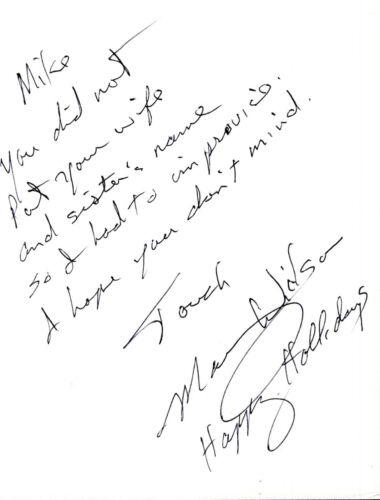 Mike
You did not
Put your wife
and sister's name
so I had to improvise.
I hope you don't mind.
Touch
Wilson
Happy Hollidays